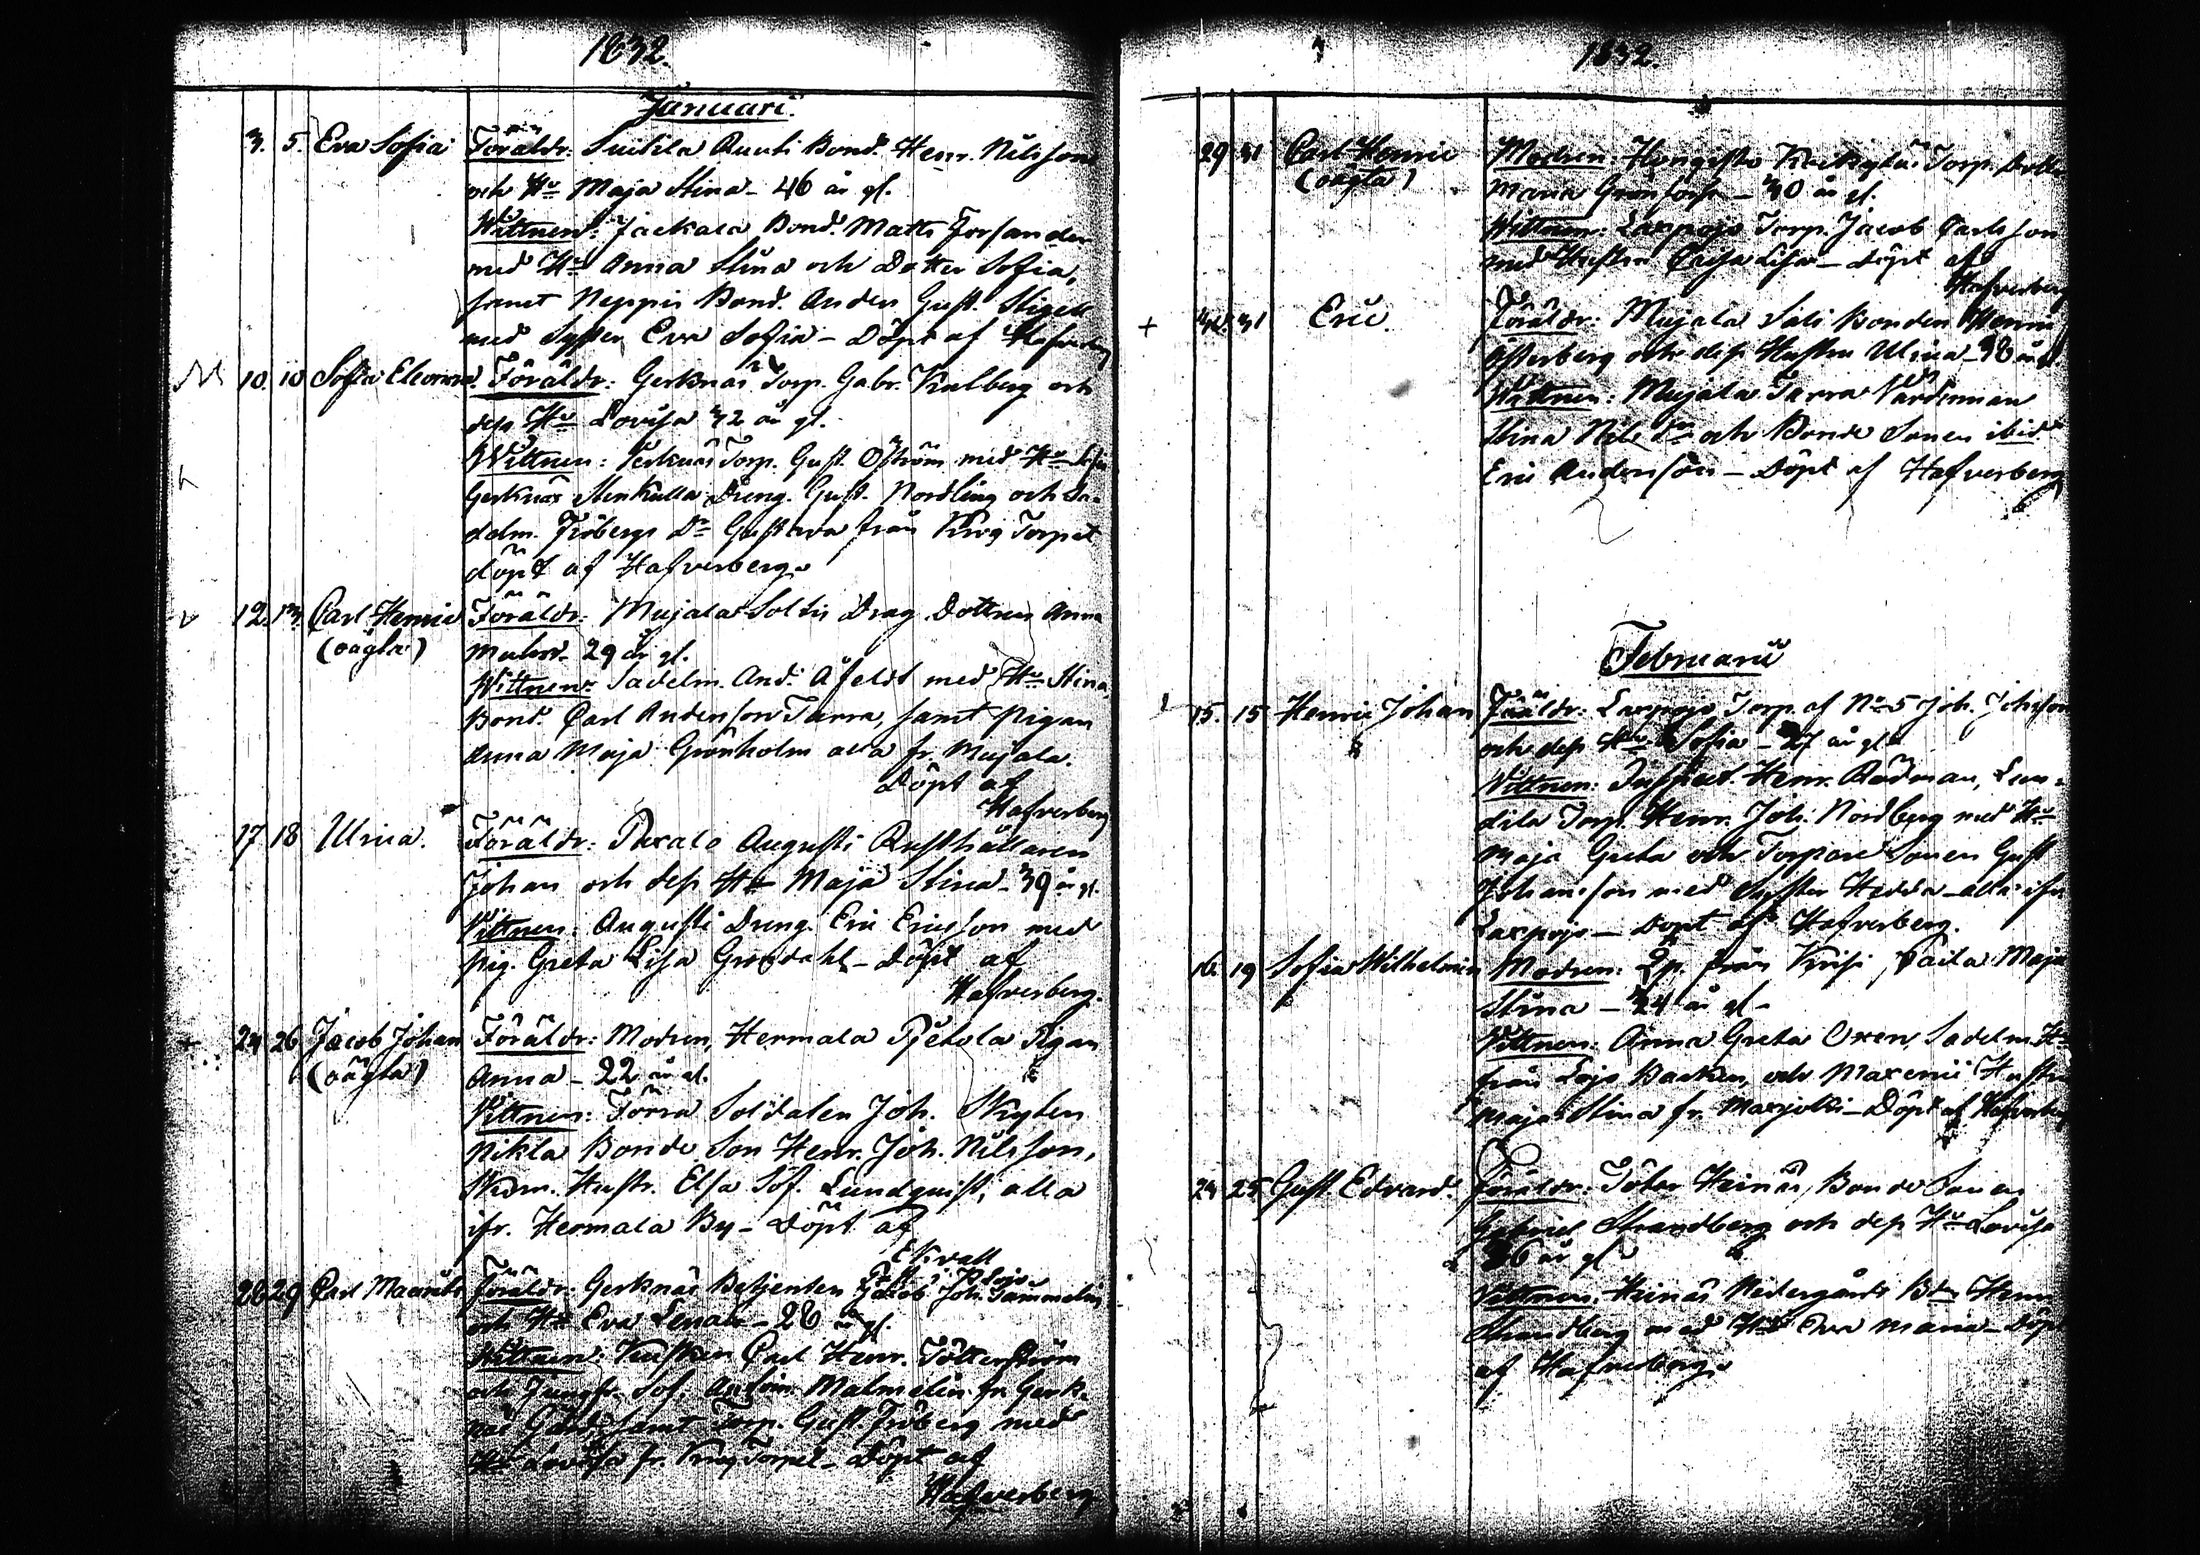 1832.
Januari.
3. 5. Eva Sofia Föräldr: Suitila Ruuti Bond. Henr. Nilsson
och Hu Maja Stina - 46 år gl.
Wittnen: Jackala Bond. Matts Forsander
med Hu Anna Stina och Dotter Sofia,
samt Neppis Bond. Anders Gust. Stigell
med Syster Eva Sofia - Döpt af
10. 10 Sofia Eleonora Föräldr: Gerknäs Torp. Gabr. Kulberg och
dess Hu Lovisa 32 år gl.
Wittnen: Gerknäs Torp. Gust. Öström med Hu
Gerknäs Stenkulla Dreng. Gust. Nordling och Sa-
delm. Fröbergs Dr Gustava från Krog Torpet
döpt af Hafverberg.
12. 13. Carl Henric Föräldr: Mujala Soltis Drag. Dottren Anna
(oägta) 29 år gl.
Wittnen: Sadelm. And. Åfeldt med Hu Stina
Bond. Carl Anderson Tarra, samt pigan
Anna Maja Grönholm alla fr. Mujala.
Döpt af
Hafverberg
17 18 Ulrica. Föräldr: Paxalo Augusti Rusthållaren
Johan och dess Hu Maja Stina - 39 år gl.
Wittnen: Augusti Dreng. Eric Ericsson med
pig. Greta Lisa Gröndahl - Döpt af
Hafverberg.
24 26 Jacob Johan Föräldr: Modren, Hermala Pjetola Pigan
(oägta) Anna - 22 år gl.
Wittnen: Förra Soldaten Joh. Skyten
Nikla Bonde Son Henr. Joh. Nilsson,
Hustr. Elsa Sof. Lundquist, alla
ifr. Hermala By - Döpt af
Ekvall
28 29 Carl Maurits Föräldr: Gerknäs Betjenten Jacob Joh. Tammelin
och Hu Eva Lena - 28 år gl.
Wittnen: Kusken Carl Henr. Tötterström
och Jungfr. Sof. Malmelin fr. Gerk-
näs Gård, samt Torp. Gust. Fröberg med
Hu Lovisa fr. Krog Torpet - Döpt af
Hafverberg
1832.
29 31 Carl Henric Modren: Hongisto Torp. Dotter
(oägta) Maria Grönfors - 30 år gl.
Wittnen: Laxpojo Torp. Jacob Carlsson
med Hustru Cajsa Lisa - döpt af
Hafverberg
31 Eric. Föräldr: Mujala Sali Bonden Henric
Österberg och dess Hustru Ulrica - 38 år gl.
Wittnen: Mujala Tarra Värdinnan
Stina Nils Dr och Bonde Sonen ibid.
Eric Anderson - Döpt af Hafverberg
Februarii
15. 15 Henric Johan Föräldr: Laxpojo Torp. af No 5 Joh. Johsson
och dess Hu Sofia - 27 år gl.
Wittnen: Inspect. Henr. Rådman, Lun-
dila Torp. Henr. Joh. Nordberg med Hu
Maja Greta och Torpare Sonen Gust
Johansson med Syster Hedda - alla ifr.
Laxpojo - Döpt af Hafverberg.
16. 19 Sofia Wilhelmina Modren: från Maja
Stina - 24 år gl -
Wittnen: Anna Greta Oxen, Sadelm. Hu
från Lojo Backen, och Hustru
Maja Stina fr. - Döpt af Hafverberg
24 25 Gust. Edvard. Föräldr: Töter Heinäs, Bonde Sonen
Gabriel Strandberg och dess Hu Lovisa
36 år gl
Wittnen: Heinäs Nedergårds Henr
Strandberg med Hu Eva Maria - Döpt
af Hafverberg.